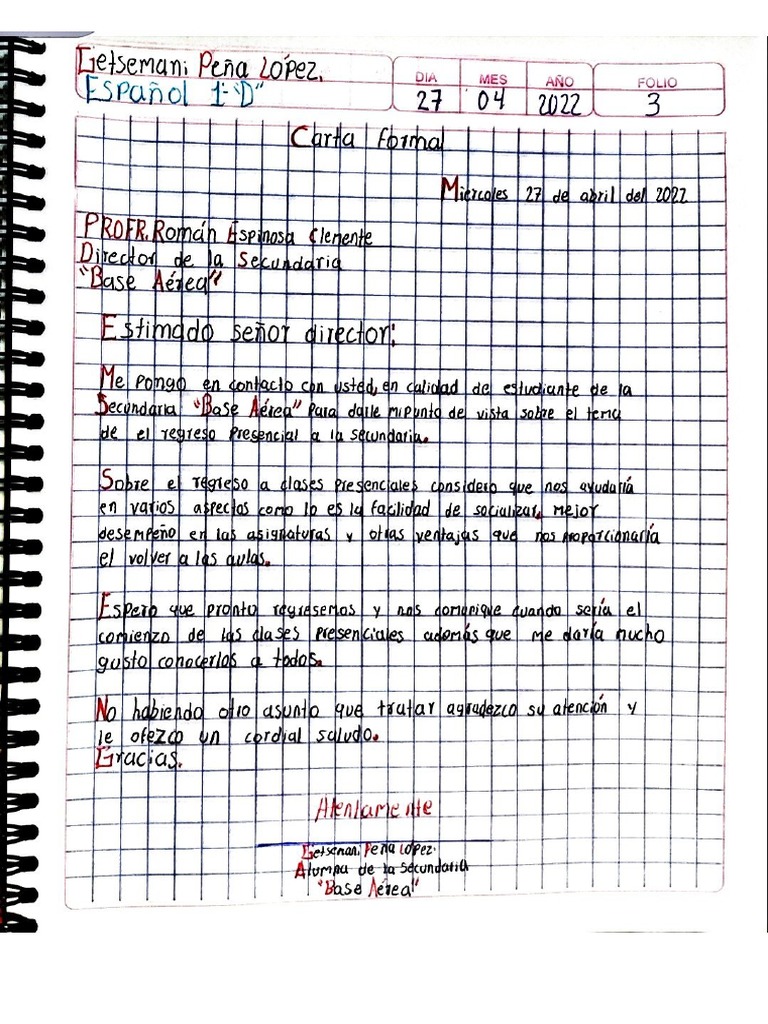 Getsemani Peña López.
Español 1-"D"
DIA MES AÑO FOLIO
27 04 2022 3
Carta Formal
Miercoles 27 de abril del 2022
PROFR. Román Espinosa Clemente
Director de la Secundaria
"Base Aérea"
Estimado señor director:
Me pongo en contacto con usted, en calidad de estudiante de la
Secundaria "Base Aérea" para darle mi punto de vista sobre el tema
de el regreso presencial a la secundaria.
Sobre el regreso a clases presenciales considero que nos ayudaría
en varios aspectos como lo es la facilidad de socializar, mejor
desempeño en las asignaturas y otras ventajas que nos proporcionaría
el volver a las aulas.
Espero que pronto regresemos y nos comunique cuando sería el
comienzo de las clases presenciales además que me daría mucho
gusto conocerlos a todos.
No habiendo otro asunto que tratar agradezco su atención y
le ofezco un cordial saludo.
Gracias.
Atentamente
Getsemani Peña López.
Alumna de la secundaria
"Base Aérea"